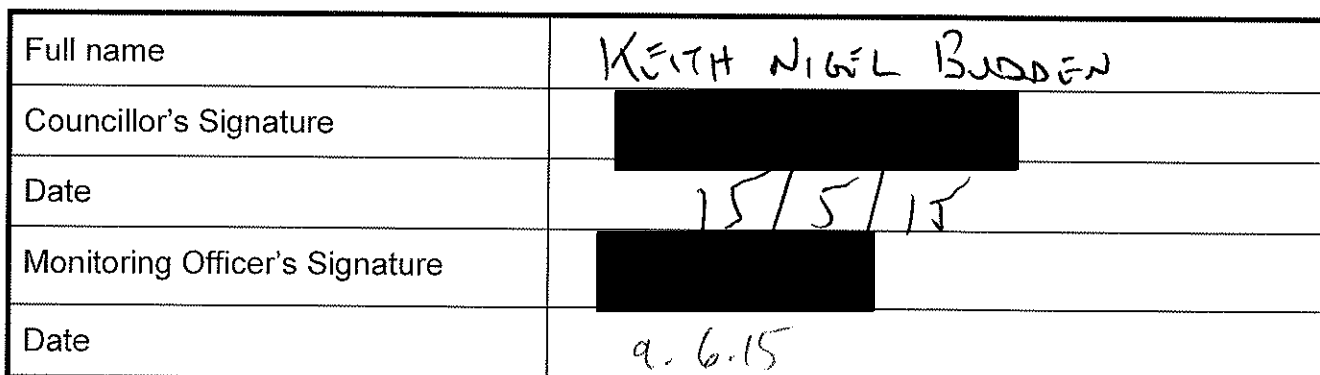 Full name KEITH NIGEL BUDDEN
Councillor's Signature
Date 15/5/15
Monitoring Officer's Signature
Date 9.6.15